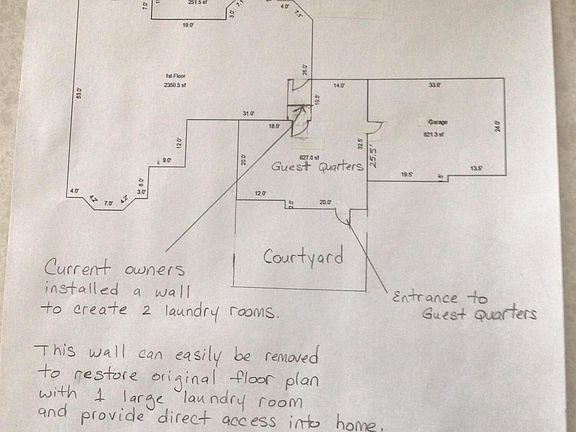 251.5 sf
7.0'
19.0'
3.0'
7.5'
4.0'
7.5'
53.0'
1st Floor
2350.5 sf
26.0'
10.5'
14.0'
33.0'
31.0'
18.0'
Garage
821.3 sf
24.0'
12.0'
20.0'
32.5'
25.5'
827.0 sf
Guest Quarters
9.0'
19.5'
13.5'
4.0'
4.2'
7.0'
4.2'
3.0'
8.0'
12.0'
2.0'
20.0'
Courtyard
Current owners
installed a wall
to create 2 laundry rooms.
Entrance to
Guest Quarters
This wall can easily be removed
to restore original floor plan
with 1 large laundry room
and provide direct access into home.